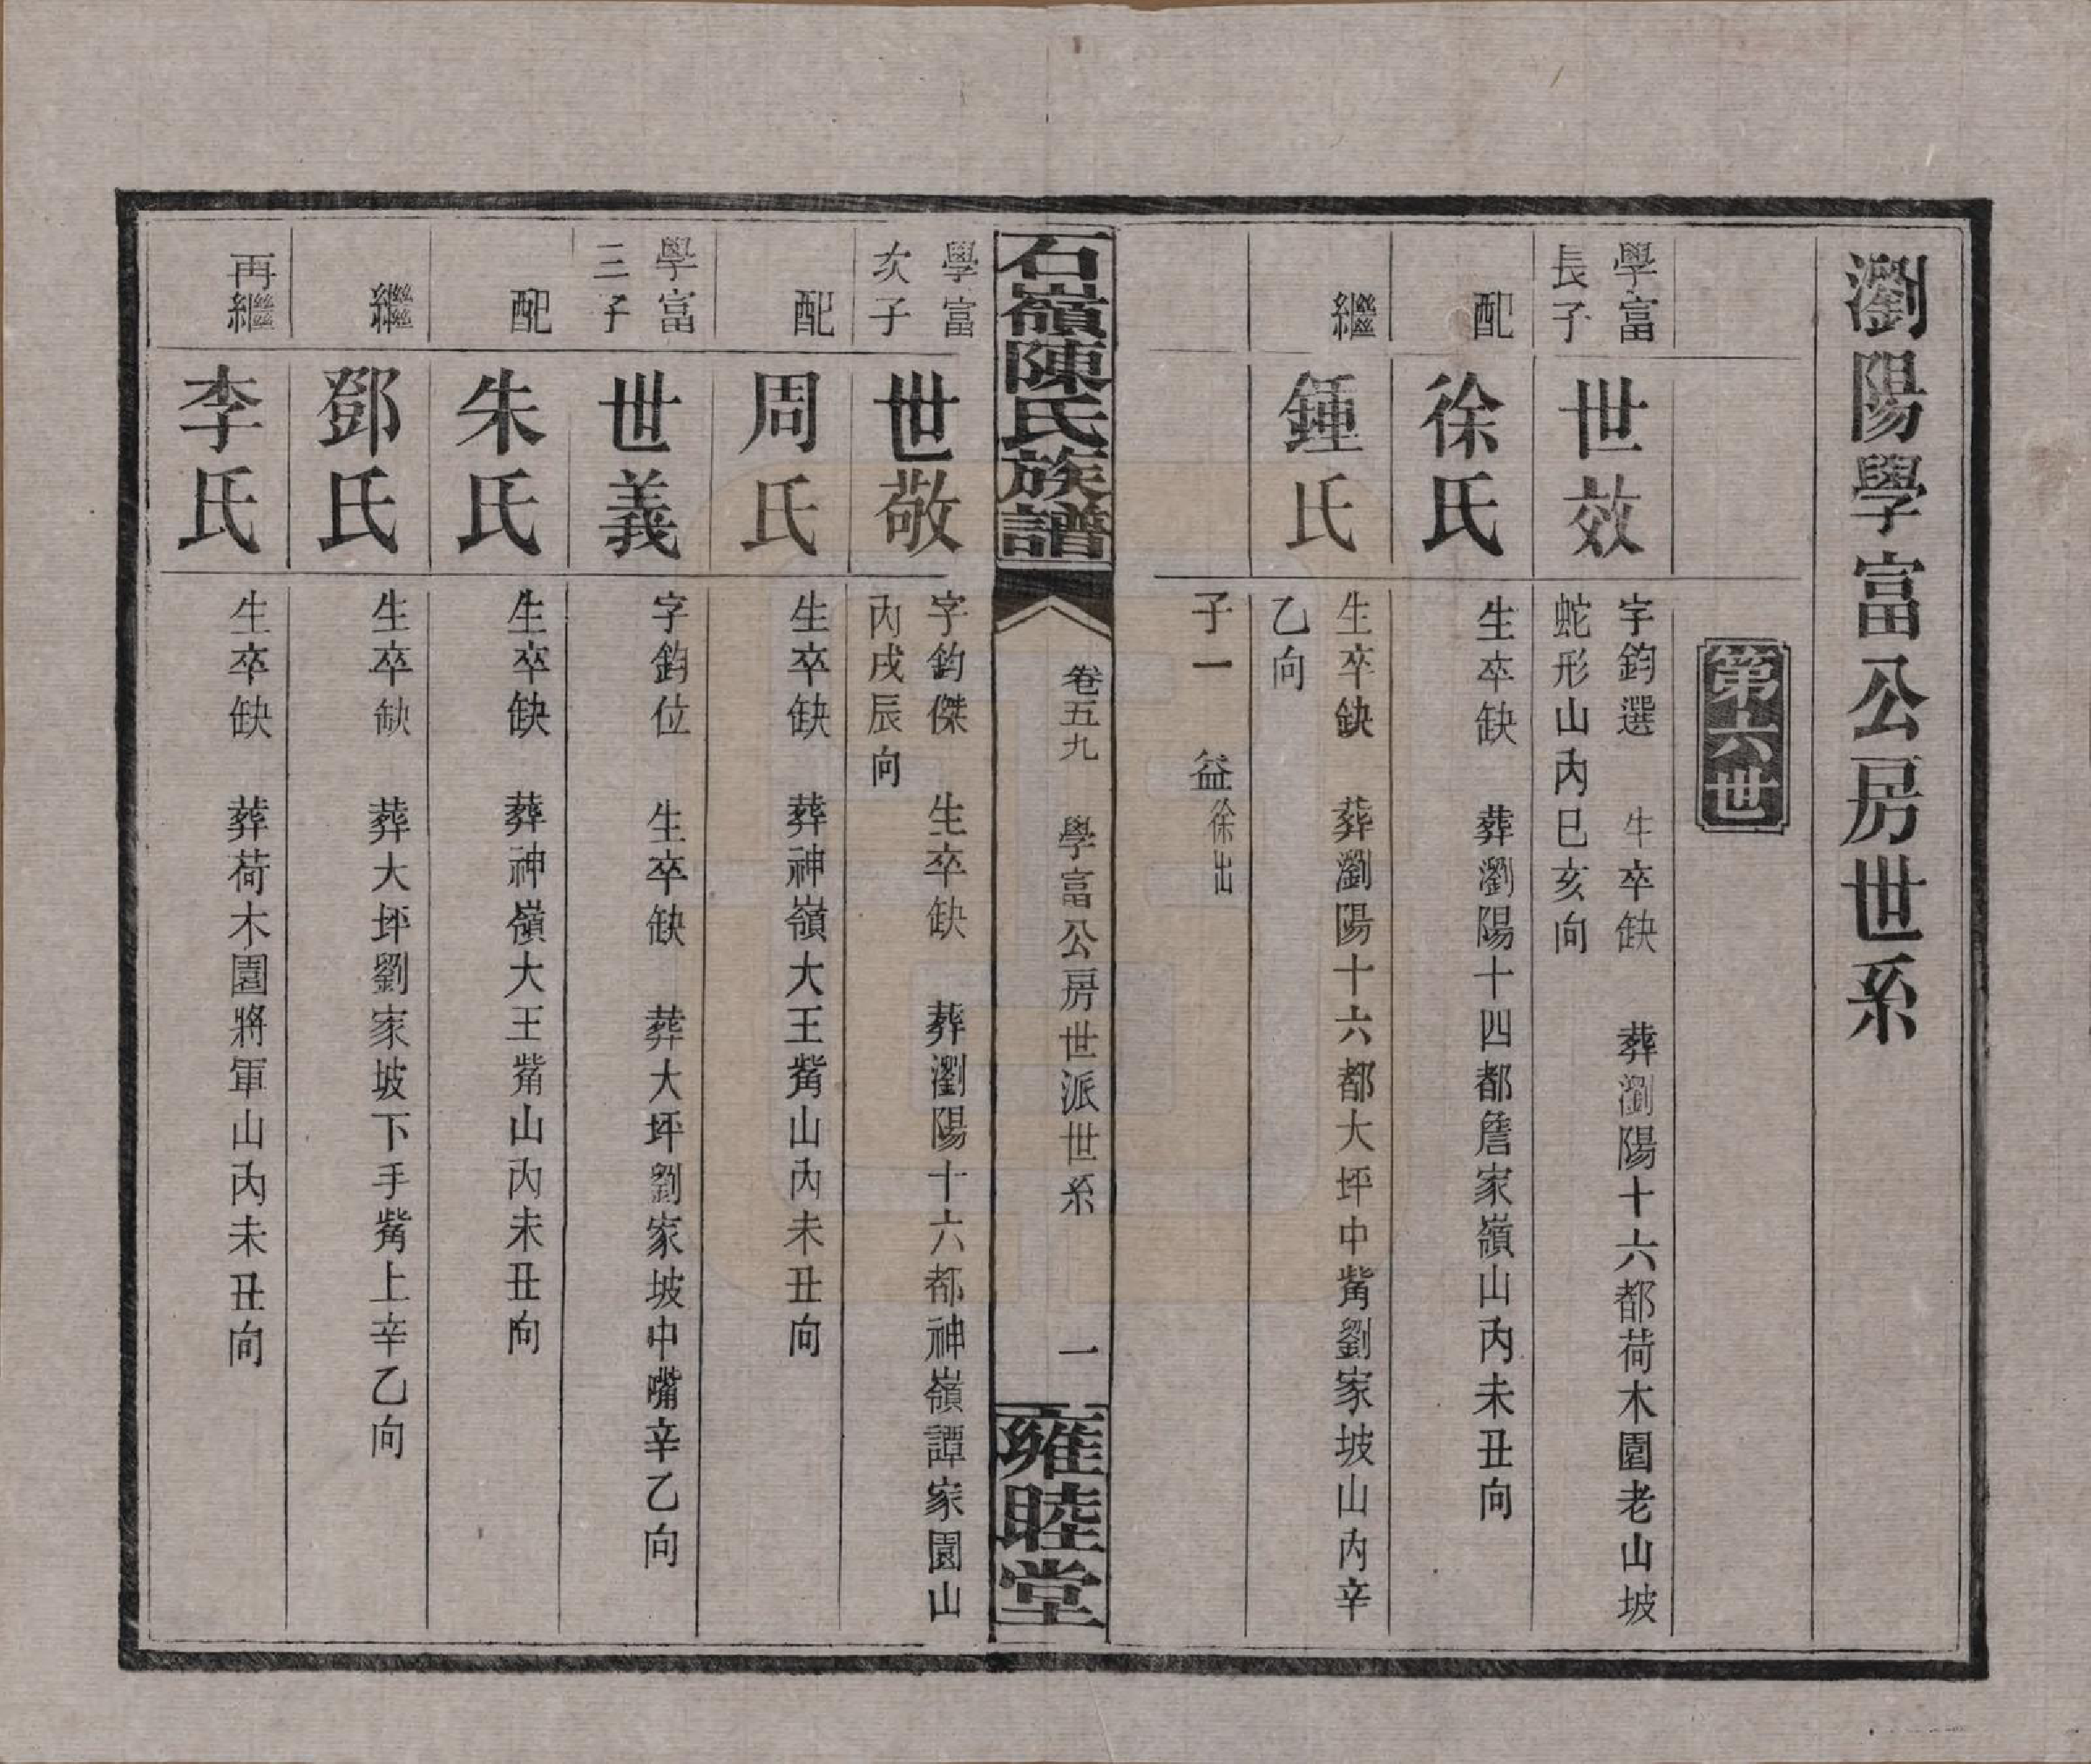 瀏陽學富公房世系
第六世
學富
長子
世效
字鈞選　生卒缺　葬瀏陽十六都荷木園老山坡
蛇形山內巳亥向
配
徐氏
生卒缺　葬瀏陽十四都詹家嶺山內未丑向
繼
鍾氏
生卒缺　葬瀏陽十六都大坪中觜劉家坡山內辛
乙向
子一　益徐出
石嶺陳氏族譜
卷五九　學富公房世派世系　一
雍睦堂
學富
次子
世敬
字鈞傑　生卒缺　葬瀏陽十六都神嶺譚家園山
內戌辰向
配
周氏
生卒缺　葬神嶺大王觜山內未丑向
學富
三子
世義
字鈞位　生卒缺　葬大坪劉家坡中嘴辛乙向
配
朱氏
生卒缺　葬神嶺大王觜山內未丑向
繼
鄧氏
生卒缺　葬大坪劉家坡下手觜上辛乙向
再繼
李氏
生卒缺　葬荷木園將軍山內未丑向